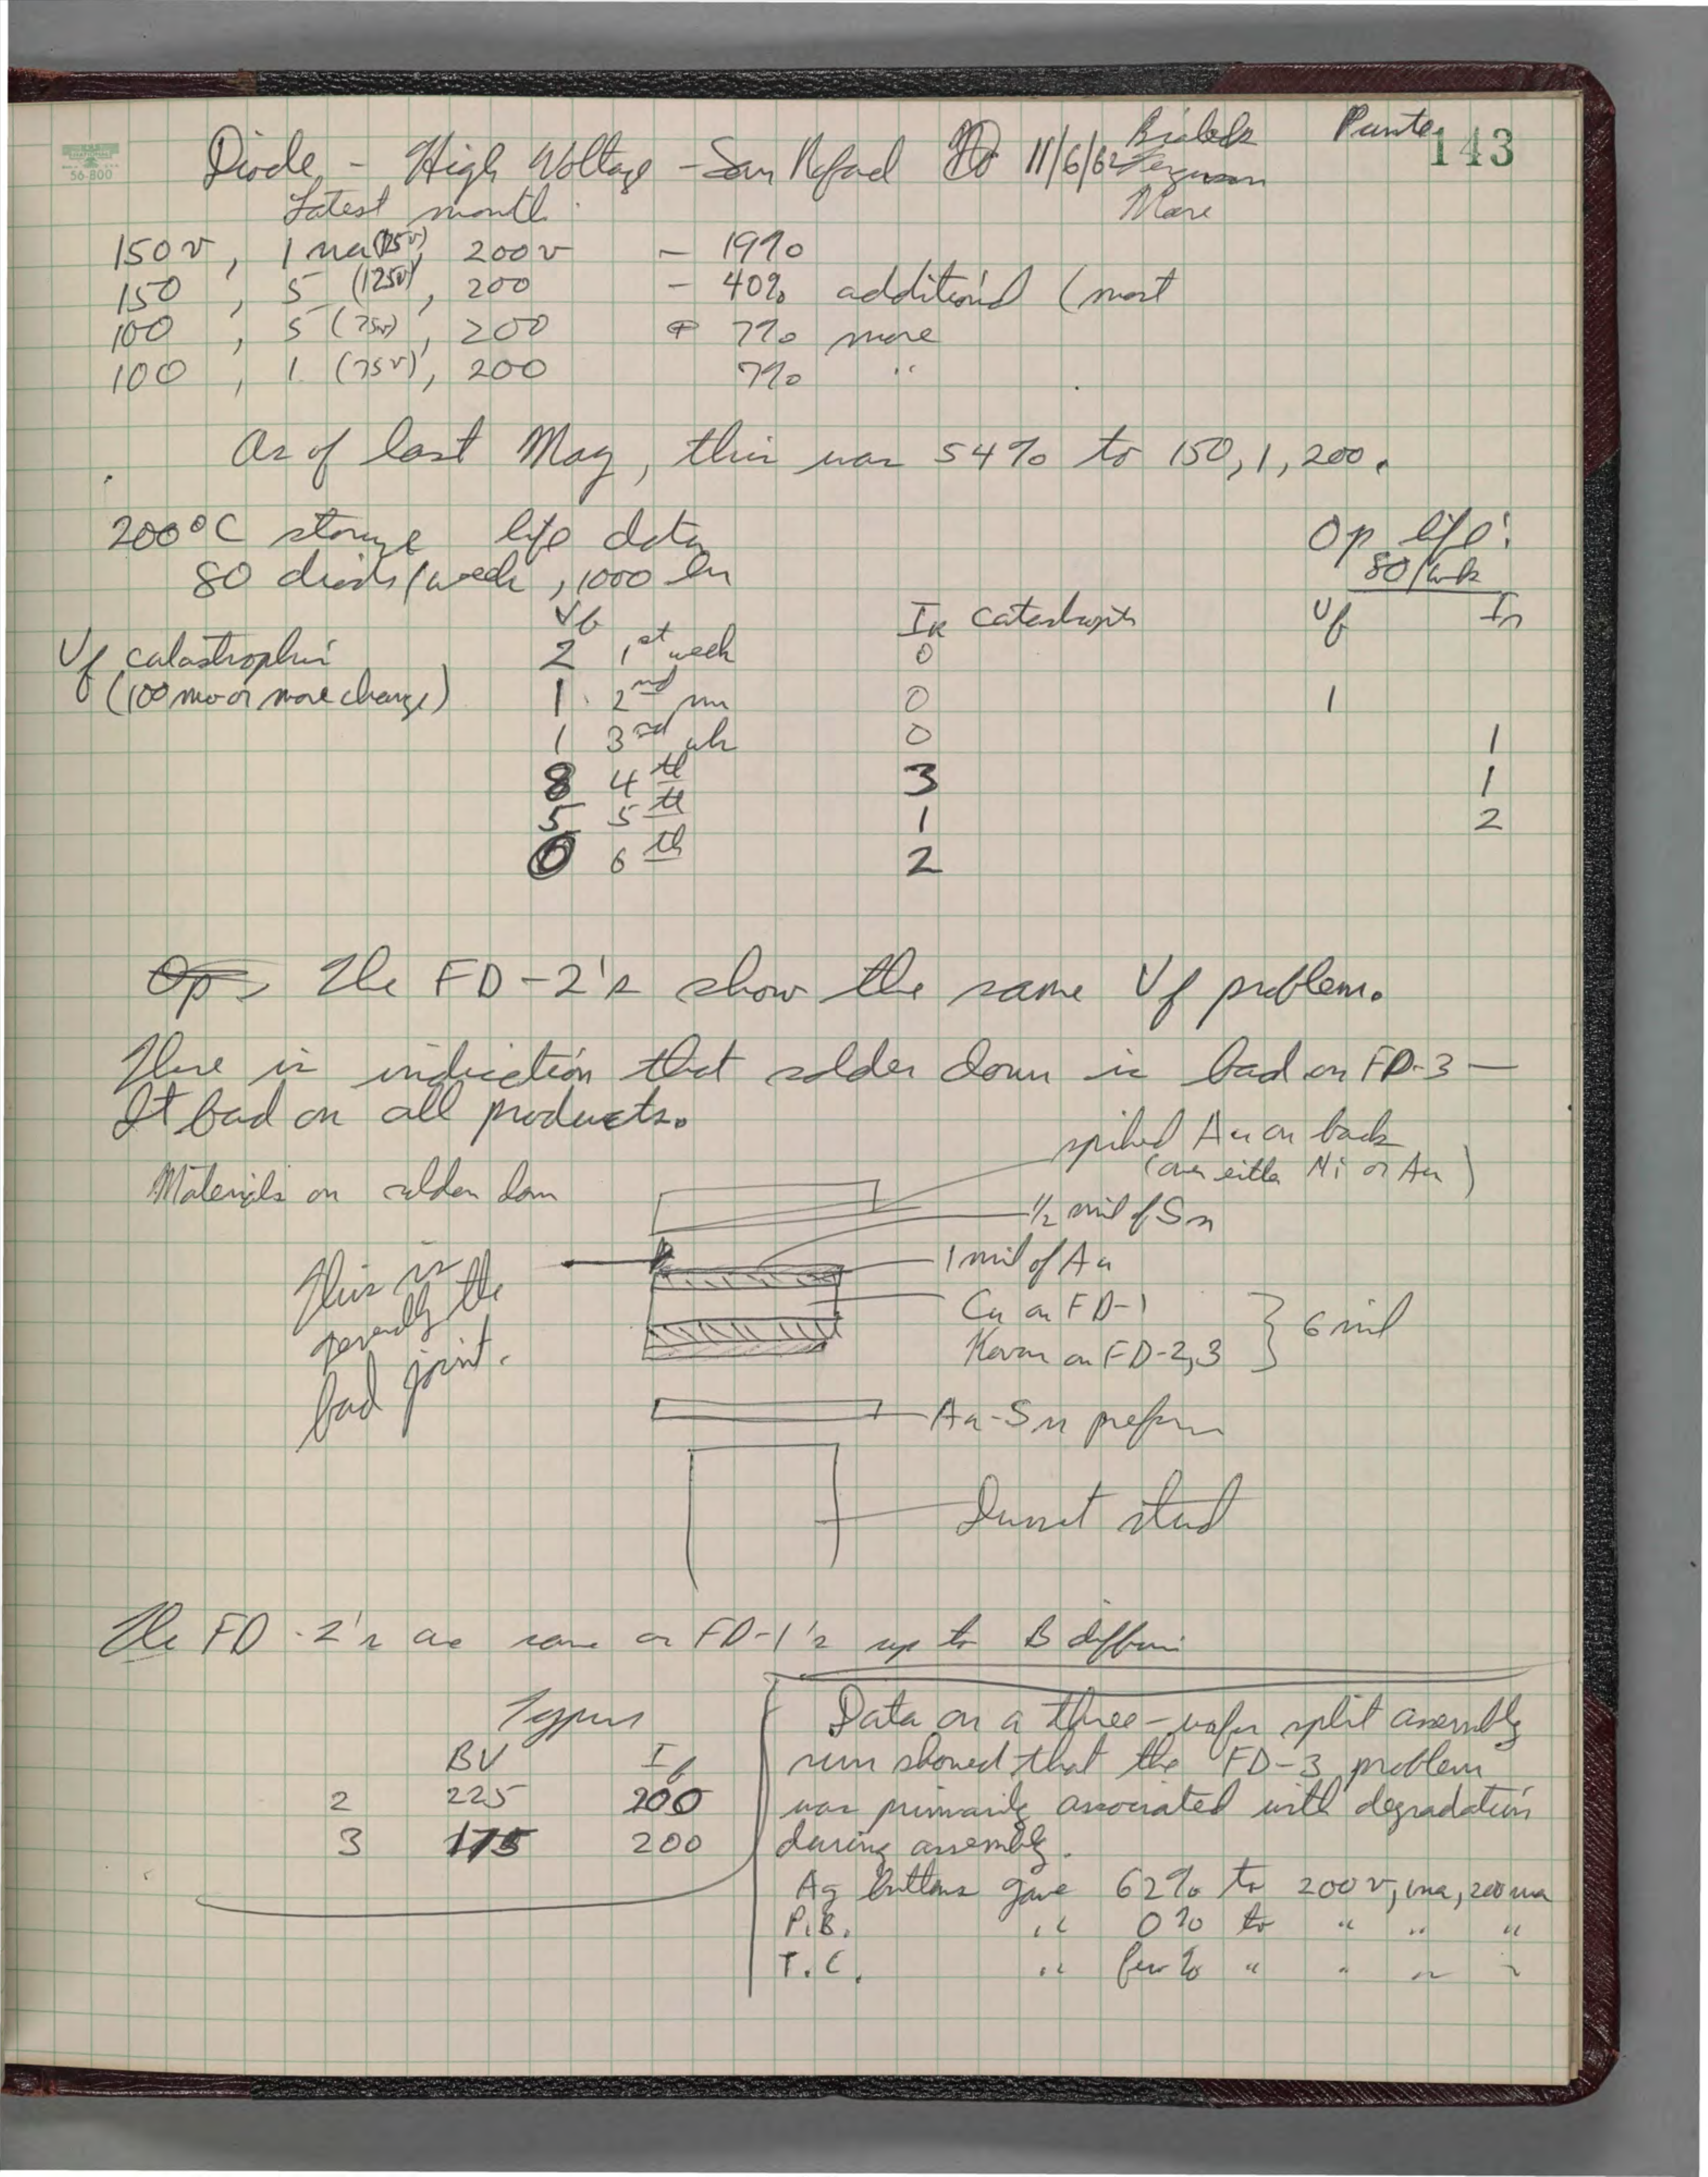 143
NATIONAL
56-800
Diode - High Voltage - San Rafael 11/6/62
Ferguson
More
Latest month
150v, 1 na (125v), 200v - 19%
150, 5 (125v), 200 - 40% additional (most
100, 5 (75v), 200 7% more
100, 1 (75v), 200 7% "
As of last May, this was 54% to 150, 1, 200.
200°C storage life data
80 diodes/week, 1000 hrs
Op life:
80/wk
Vf IR catastrophic Vf IR
Vf catastrophic 2 1st week 0
(100 mv or more change) 1 2nd 0 1
1 3rd wk 0 1
8 4th 3 1
5 5th 1 2
0 6th 2
Op The FD-2's show the same Vf problem.
There is indication that solder down is bad on FD-3 —
It bad on all products.
Materials on solder down
Au on back
(over either Ni or Au)
1/2 mil of Sn
1 mil of Au
This is
generally the
bad joint.
Cu on FD-1
Kovar on FD-2,3
6 mil
Au-Sn preform
Dumet stud
The FD-2's are same as FD-1's up to B diffusion
Types
BV If
2 225 200
3 175 200
Data on a three-wafer split assembly
run showed that the FD-3 problem
was primarily associated with degradation
during assembly.
Ag buttons gave 62% to 200v, 1na, 200ma
P.B. " 0% to " " "
T.C. " few % " " " "